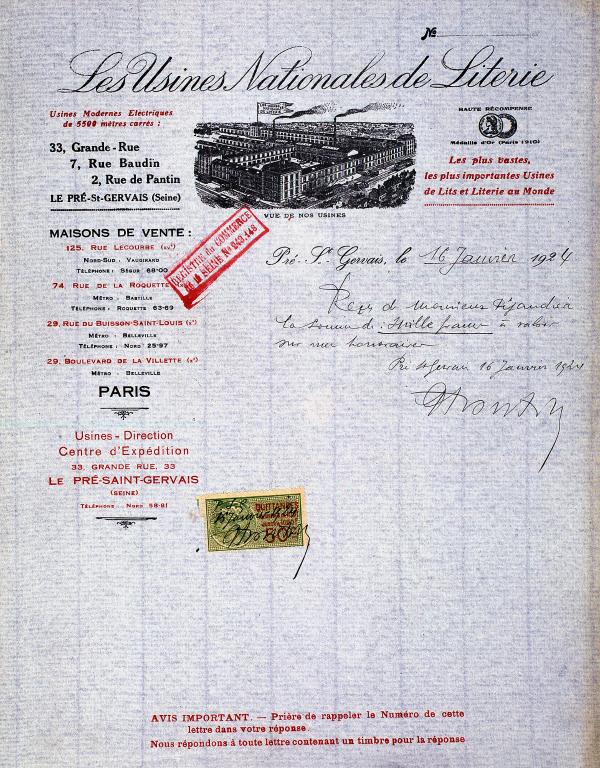 No
Les Usines Nationales de Literie
Usines Modernes Electriques
de 5500 mètres carrés :
33, Grande-Rue
7, Rue Baudin
2, Rue de Pantin
LE PRÉ-St-GERVAIS (Seine)
VUE DE NOS USINES
HAUTE RÉCOMPENSE
Médaille d'Or (Paris 1910)
Les plus vastes,
les plus importantes Usines
de Lits et Literie au Monde
MAISONS DE VENTE :
125, RUE LECOURBE (XVe)
NORD-SUD : VAUGIRARD
TÉLÉPHONE : SÉGUR 68-00
74, RUE DE LA ROQUETTE
MÉTRO : BASTILLE
TÉLÉPHONE : ROQUETTE 63-69
29, RUE DU BUISSON-SAINT-LOUIS (Xe)
MÉTRO : BELLEVILLE
TÉLÉPHONE : NORD 25-97
29, BOULEVARD DE LA VILLETTE (Xe)
MÉTRO : BELLEVILLE
PARIS
Usines - Direction
Centre d'Expédition
33, GRANDE RUE, 33
LE PRÉ-SAINT-GERVAIS
(SEINE)
TÉLÉPHONE : NORD 58-81
REGISTRE du COMMERCE
de la SEINE No 043.148
Pré-St-Gervais, le 16 Janvier 1924
Reçu de Monsieur
la somme de : Mille francs à valoir
sur mes honoraires
Pré St Gervais 16 Janvier 1924
QUITTANCES
50
AVIS IMPORTANT. — Prière de rappeler le Numéro de cette
lettre dans votre réponse.
Nous répondons à toute lettre contenant un timbre pour la réponse